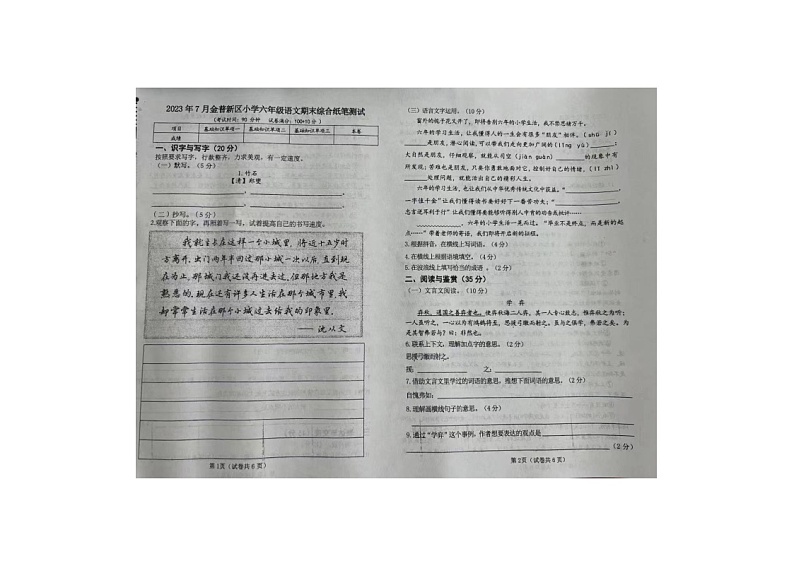 2023 年 7 月金普新区小学六年级语文期末综合纸笔测试
(考试时间: 90 分钟 试卷满分: 100+10 分 )
项目 基础知识单项一 基础知识单项二 基础知识单项三 本卷
一、识字与写字(20 分)
按照要求写字,行款整齐,力求美观,有一定速度。
(一)默写。(5 分)
1.竹石
【清】郑燮
(二)抄写。(5 分)
2.观察下面的字,再照着写一写,试着提高自己的书写速度。
我就生长在这样一个小城里,将近十五岁时
方离开。出门两年半回过那小城一次以后,直到现
在为止,那城门我还没再进去过。但那地方我是
熟悉的。现在还有许多人生活在那个城市里,我
却常常生活在那个小城过去给我的印象里。
——沈从文
第 1页(试卷共 6 页)
(三)语言文字运用。(10 分)
窗外的栀子花又开了,即将告别六年的小学生活,我不禁思绪万千。
六年的学习生活,让我懂得人的一生会有很多“朋友”相伴。(shū jí)
是朋友,潜心阅读,可以带我们走向更加广阔的(lǐng yù) ;
大自然是朋友,仔细观察,就能从(jiàn guàn) 的现象中有
所发现;苦难也是朋友,只要你勇敢地面对它,控制好自己的情绪,(lǐ zhì)
处理问题,就能活出自己的精彩人生。
六年的学习生活,也让我们从中华优秀传统文化中获益。“ ,
一手值千金”让我们懂得读书要好好下一番苦功夫;“ ,
忠言逆耳利于行”让我们懂得交朋友能够听得别人中肯的劝告或批评……
,六年的小学生活一晃而过。“毕业不是终点,而是新的起
点。”带着老师的寄语,我们即将开启新的征程。
3.根据拼音,在横线上写词语。(4 分)
4.在横线上根据语境填空。(4 分)
5.在波浪线上填写恰当的成语 。(2 分)
二、阅读与鉴赏(35 分)
(一)文言文阅读。(10 分)
学 弈
弈秋,通国之善弈者也。使弈秋诲二人弈,其一人专心致志,惟弈秋之为听;
一人虽听之,一心以为有鸿鹄将至,思援弓缴而射之。虽与之俱学,弗若之矣。为
是其智弗若与?曰:非然也。
6.联系上下文,理解加点字的意思。(2 分)
思援弓缴而射之。
援: 之:
7.借助文言文里学过的词语的意思,推想下面词语的意思。(2 分)
自愧弗如:
8.理解画横线句子的意思。(4 分)
9.通过“学弈”这个事例,作者想要表达的观点是
(2 分)
第 2页(试卷共 6 页)